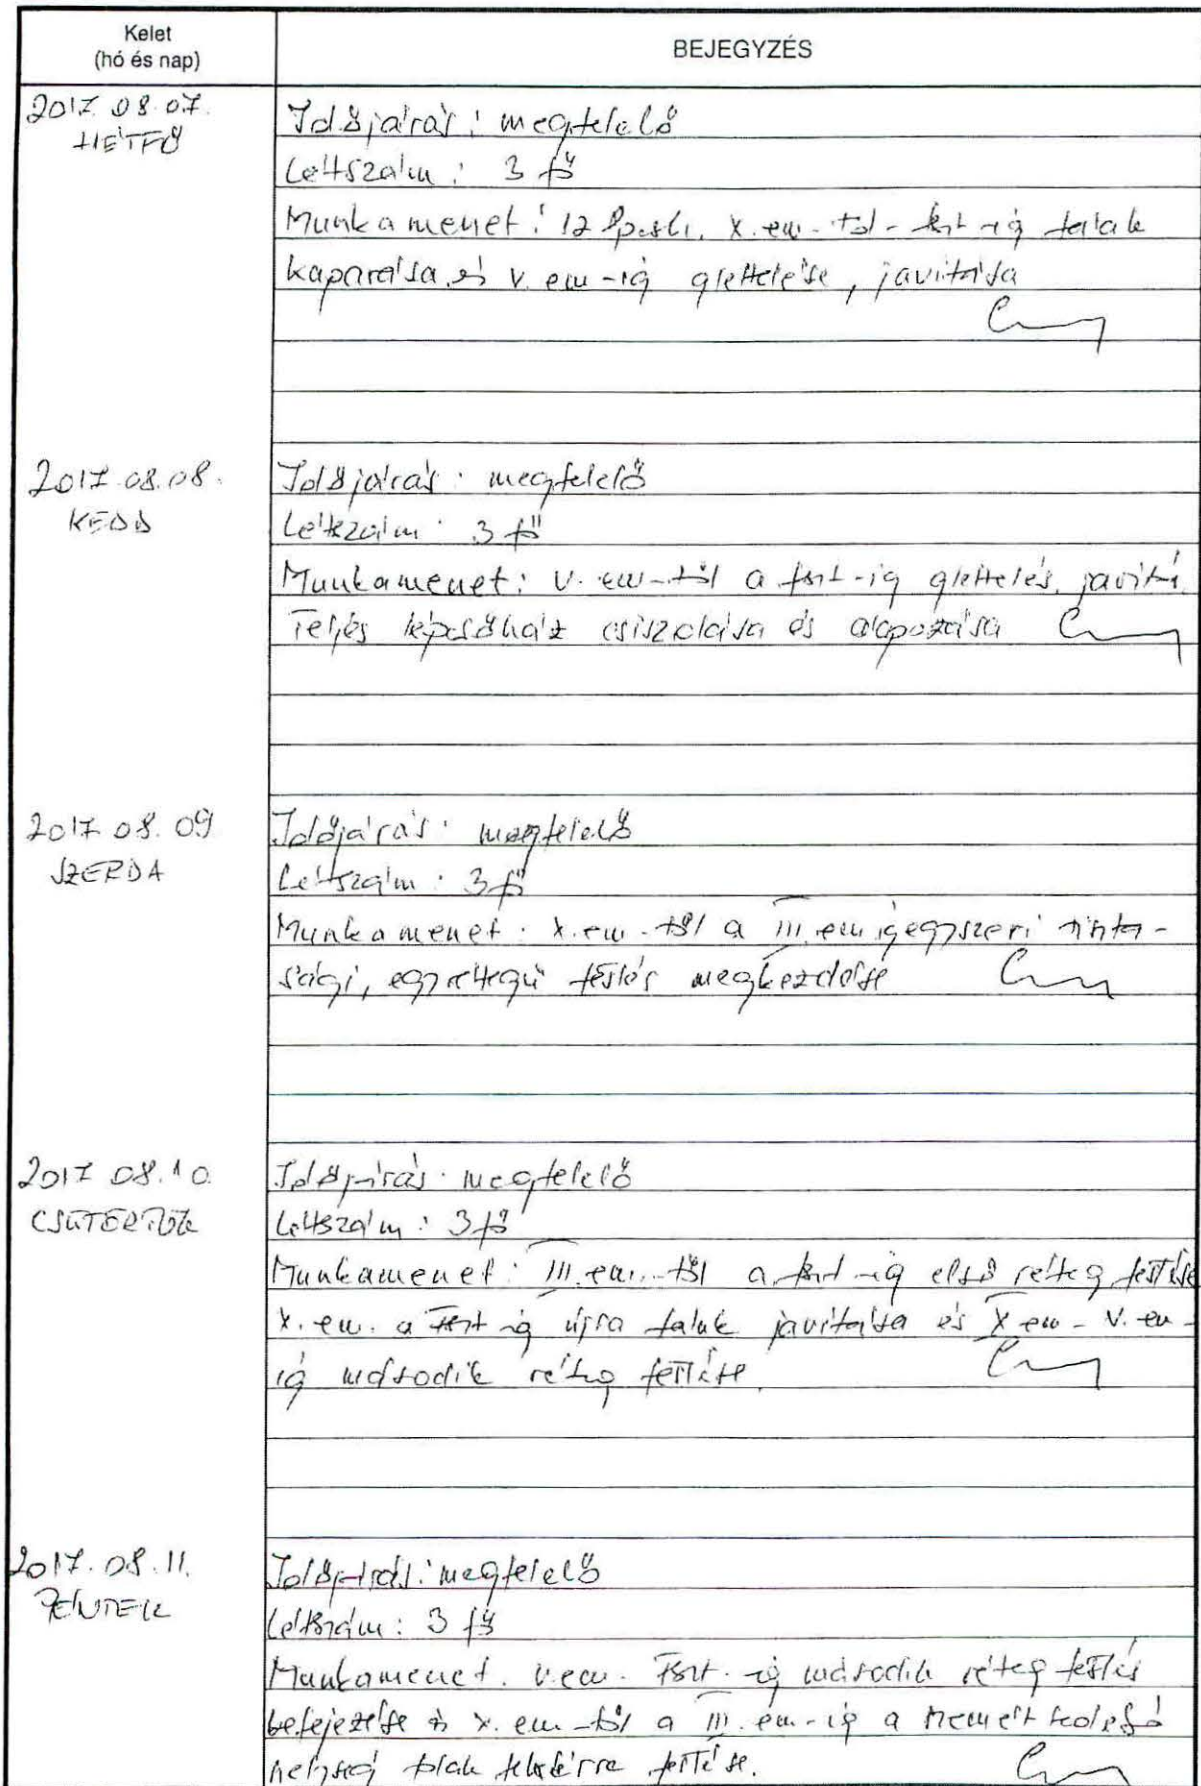 Kelet
(hó és nap)
BEJEGYZÉS
2017.08.07.
HÉTFŐ
Időjárás: megfelelő
Létszám: 3 fő
Munkamenet: 12 lpcsh. X. em-tól - fszt-ig falak
kaparása és V. em-ig glettelése, javítása
2017.08.08.
KEDD
Időjárás: megfelelő
Létszám: 3 fő
Munkamenet: V. em-től a fszt-ig glettelés, javítás
Teljes lépcsőház csiszolása és alapozása
2017.08.09
SZERDA
Időjárás: megfelelő
Létszám: 3 fő
Munkamenet: X. em-től a III. em ig egyszeri tiszta-
sági, egyrétegű festés megkezdése
2017 08.10.
CSÜTÖRTÖK
Időjárás: megfelelő
Létszám: 3 fő
Munkamenet: III. em.-től a fszt-ig első réteg festése
X. em. a Fszt-ig újra falak javítása és X em - V. em-
ig második réteg festése.
2017.08.11.
PÉNTEK
Időjárás: megfelelő
Létszám: 3 fő
Munkamenet. V. em. Fszt.-ig második réteg festés
befejezése és X. em-től a III. em-ig a
helység falak fehérre festése.